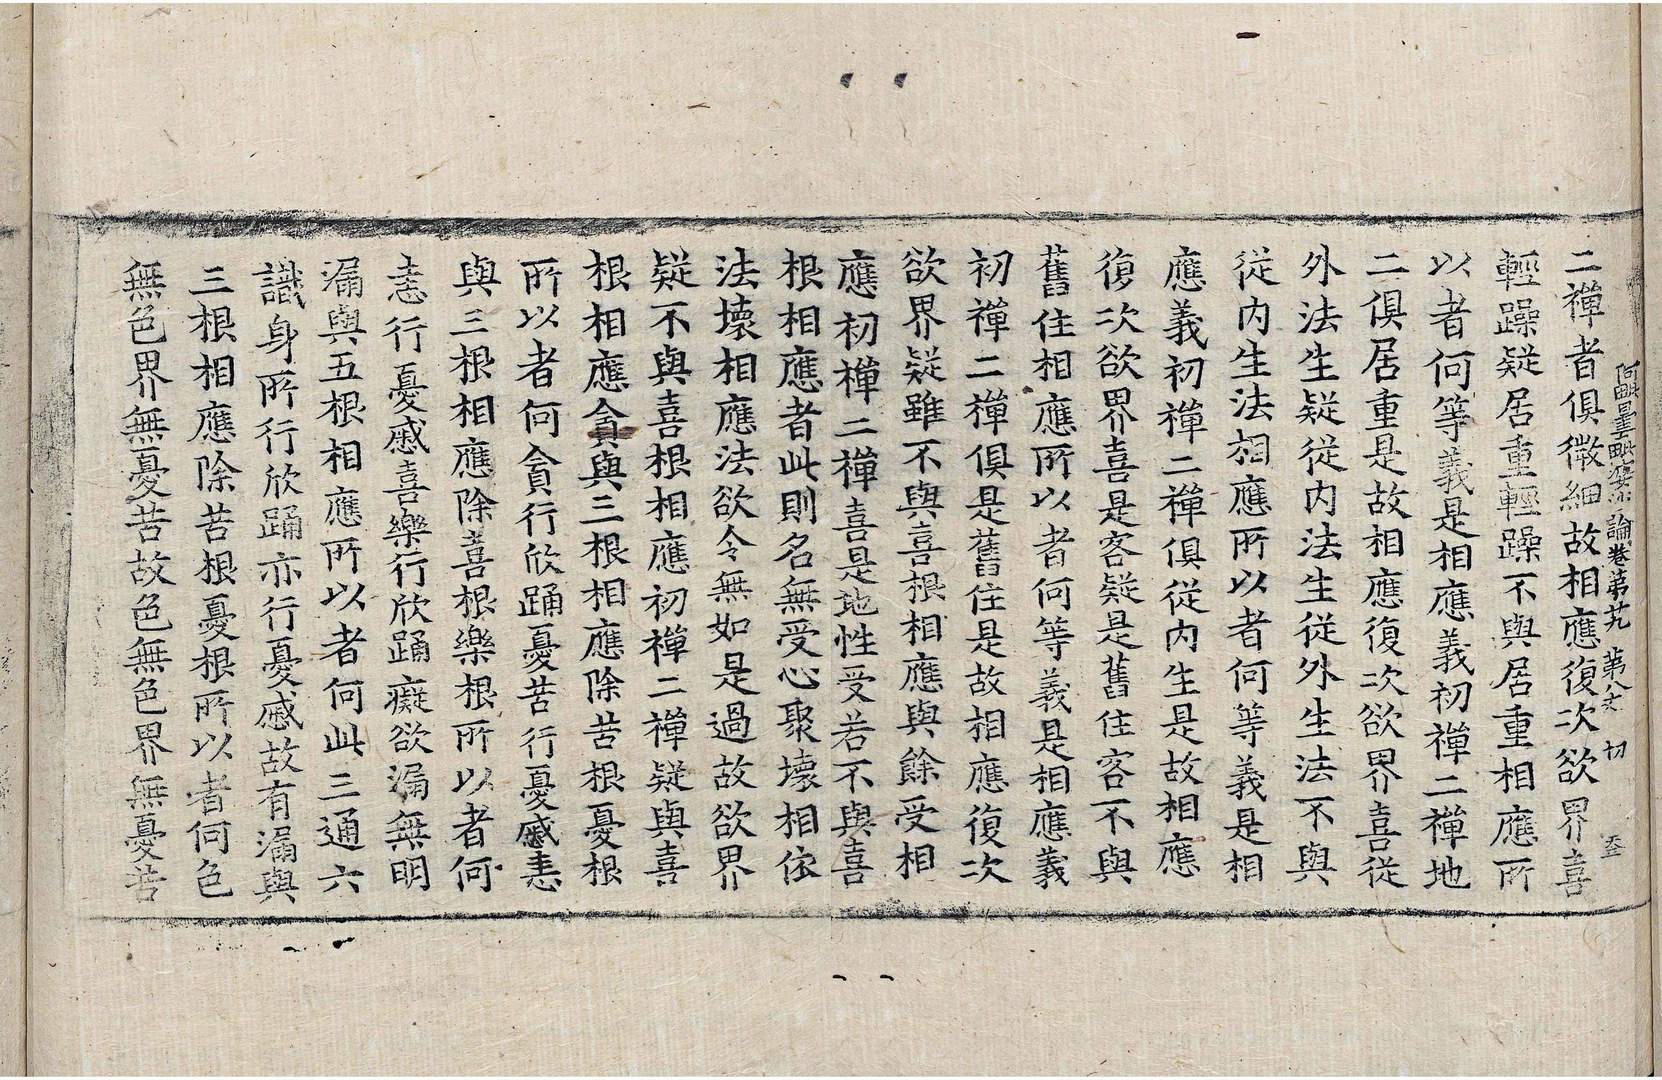 阿毗曇毗婆沙論卷第卅九 第八丈 切
二禪者俱微細故相應復次欲界喜
輕躁疑居重輕躁不與居重相應所
以者何等義是相應義初禪二禪地
二俱居重是故相應復次欲界喜從
外法生疑從内法生從外生法不與
從内生法相應所以者何等義是相
應義初禪二禪俱從内生是故相應
復次欲界喜是客疑是舊住客不與
舊住相應所以者何等義是相應義
初禪二禪俱是舊住是故相應復次
欲界疑雖不與喜根相應與餘受相
應初禪二禪喜是地性受若不與喜
根相應者此則名無受心聚壞相依
法壞相應法欲令無如是過故欲界
疑不與喜根相應初禪二禪疑與喜
根相應貪與三根相應除苦根憂根
所以者何貪行欣踊憂苦行憂慼恚
與三根相應除喜根樂根所以者何
恚行憂慼喜樂行欣踊癡欲漏無明
漏與五根相應所以者何此三通六
識身所行欣踊亦行憂慼故有漏與
三根相應除苦根憂根所以者何色
無色界無憂苦故色無色界無憂苦